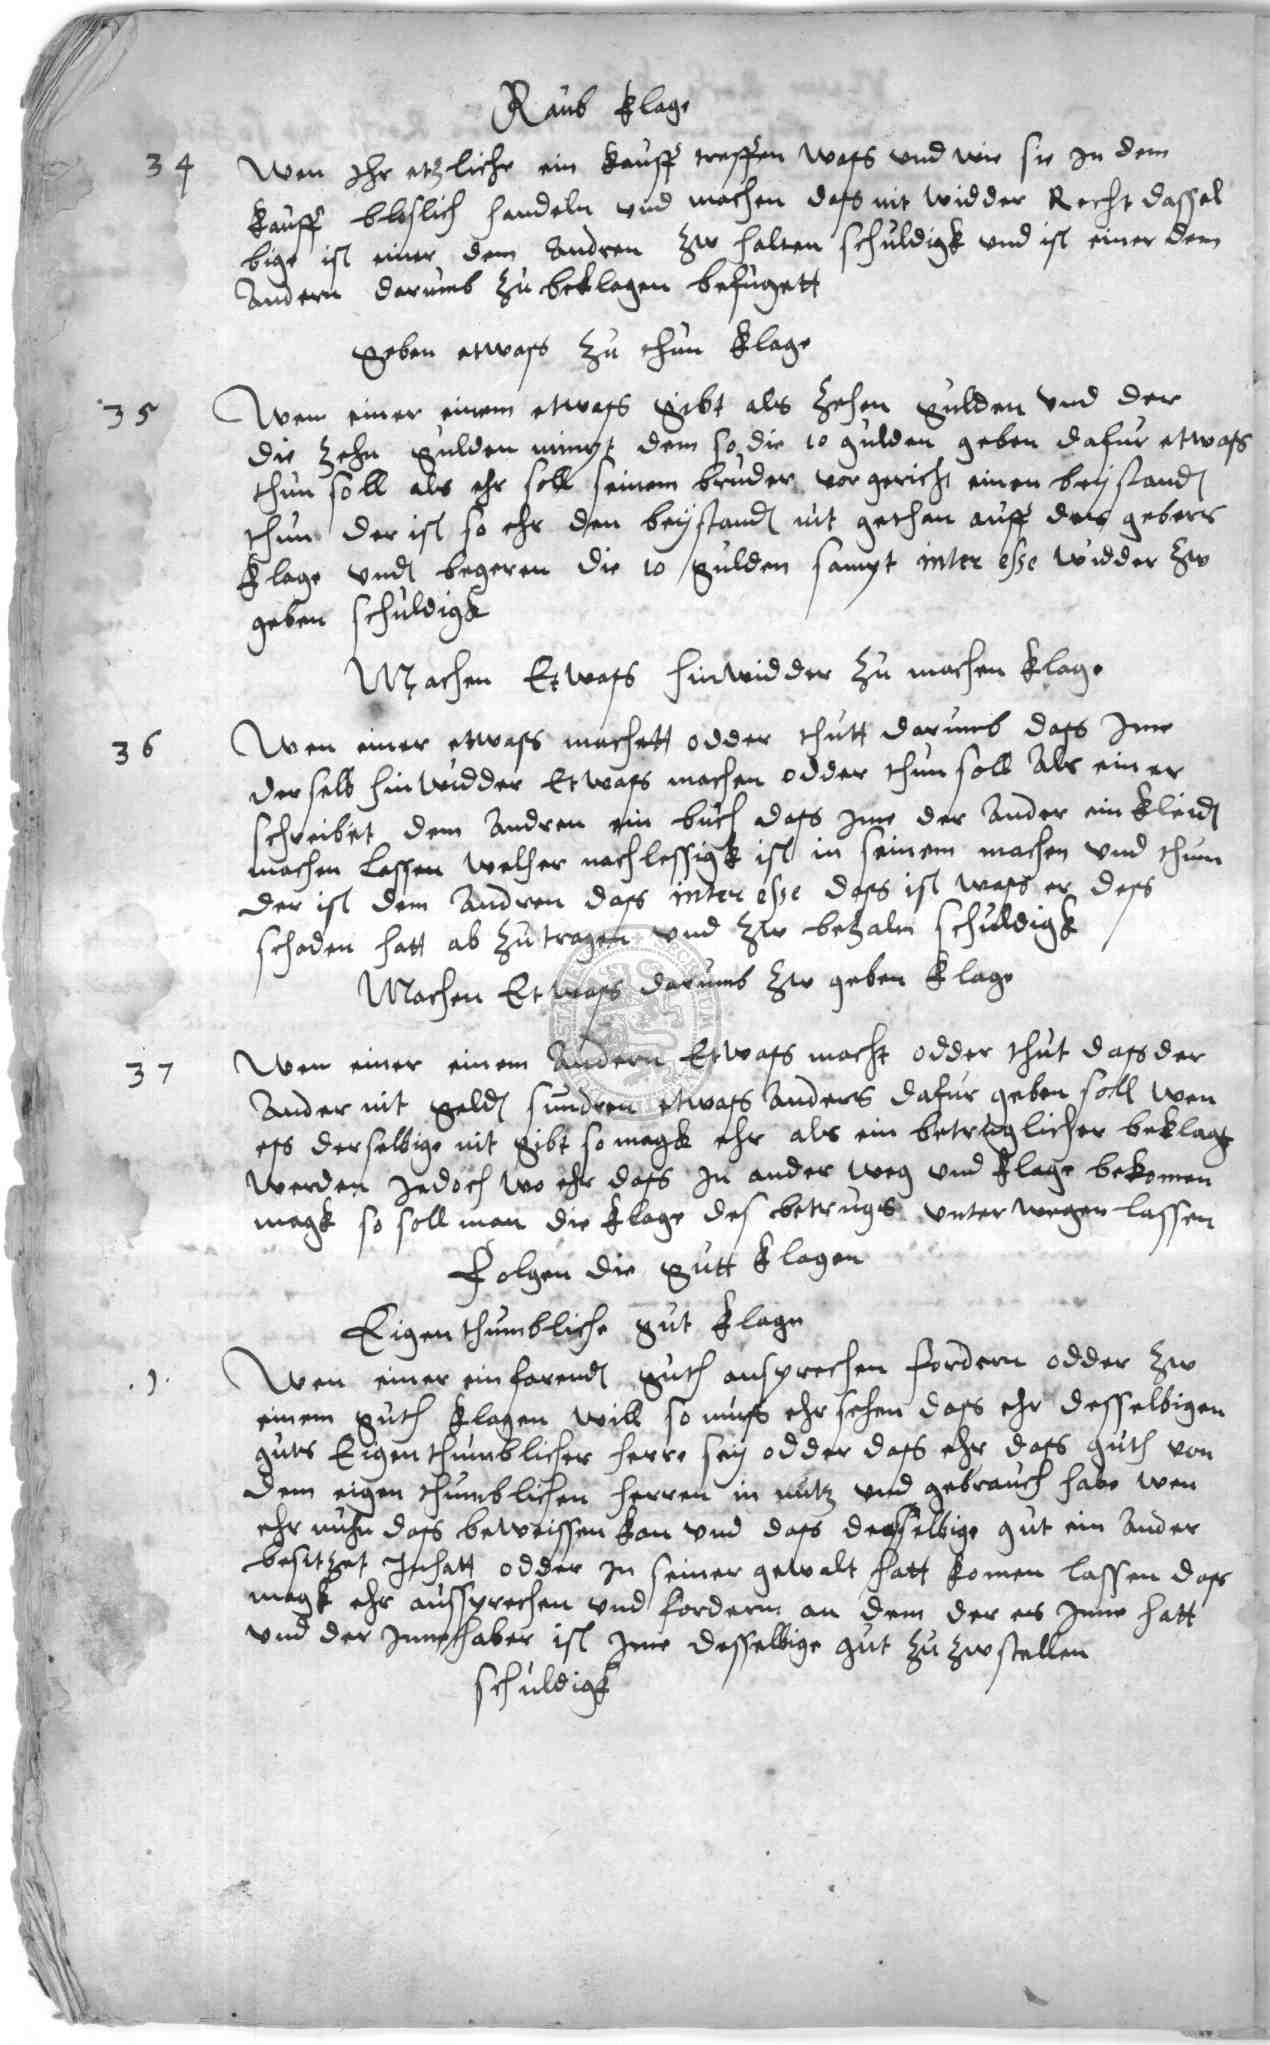 Raub klage
34 Wen Ihr etzliche ein kauff treffen wass vnd wie sie In dem
kauff handeln vnd machen dass nit widder Recht dassel
bige ist einer dem Andren zw halten schuldigk vnd ist einer dem
Andern darumb zu beklagen befugett
geben etwass zu thun klage
35 Wen einer einem etwass gibt als zehen gulden vnd der
die zehn gulden nimpt dem so die 10 gulden geben dafur etwass
thun soll als ehr soll seinem bruder vor gericht einen beystandt
thun der ist so ehr den beystandt nit gethan auff des gebers
klage vndt begeren die 10 gulden sampt inter esse widder zw
geben schuldigk
Machen Etwass hinwidder zu machen klage
36 Wen einer etwass machett odder thutt darumb dass Ime
derselb hinwidder Etwass machen odder thun soll Als einer
schreibet dem Andren ein buch dass Ime der Ander ein kleidt
machen lassen welcher nachlessigk ist in seinem machen vnd thun
der ist dem Andren dass inter esse dass ist wass er dess
schaden hatt ab zu tragen vnd zw betzalen schuldigk
Machen Etwass darumb zw geben klage
37 Wen einer einem Andern Etwass macht odder thut dass der
Ander nit geldt sundren etwass Anders dafur geben soll wen
ess derselbige nit gibt so magk ehr als ein betruglicher beklagt
werden Jedoch wo ehr dass In ander weg vnd klage bekomen
magk so soll man die klage des betrugs vnter wegen lassen
Folgen die gutt klagen
Eigenthumbliche gut klage
.1. Wen einer ein farendt guth ansprechen fordern odder zw
einem guth klagen will so muss ehr sehen dass ehr desselbigen
guts Eigenthumblicher herre sey odder dass ehr dass guth von
dem eigenthumblichen herren in nutz vnd gebrauch habe wen
ehr nuhn dass beweissen kan vnd dass dasselbige gut ein Ander
besitzet Inhatt odder In seiner gewalt hatt komen lassen dass
magk ehr aussprechen vnd fordern an dem der es Inne hatt
vnd der Innehaber ist Ime desselbige gut zu zwstellen
schuldigk